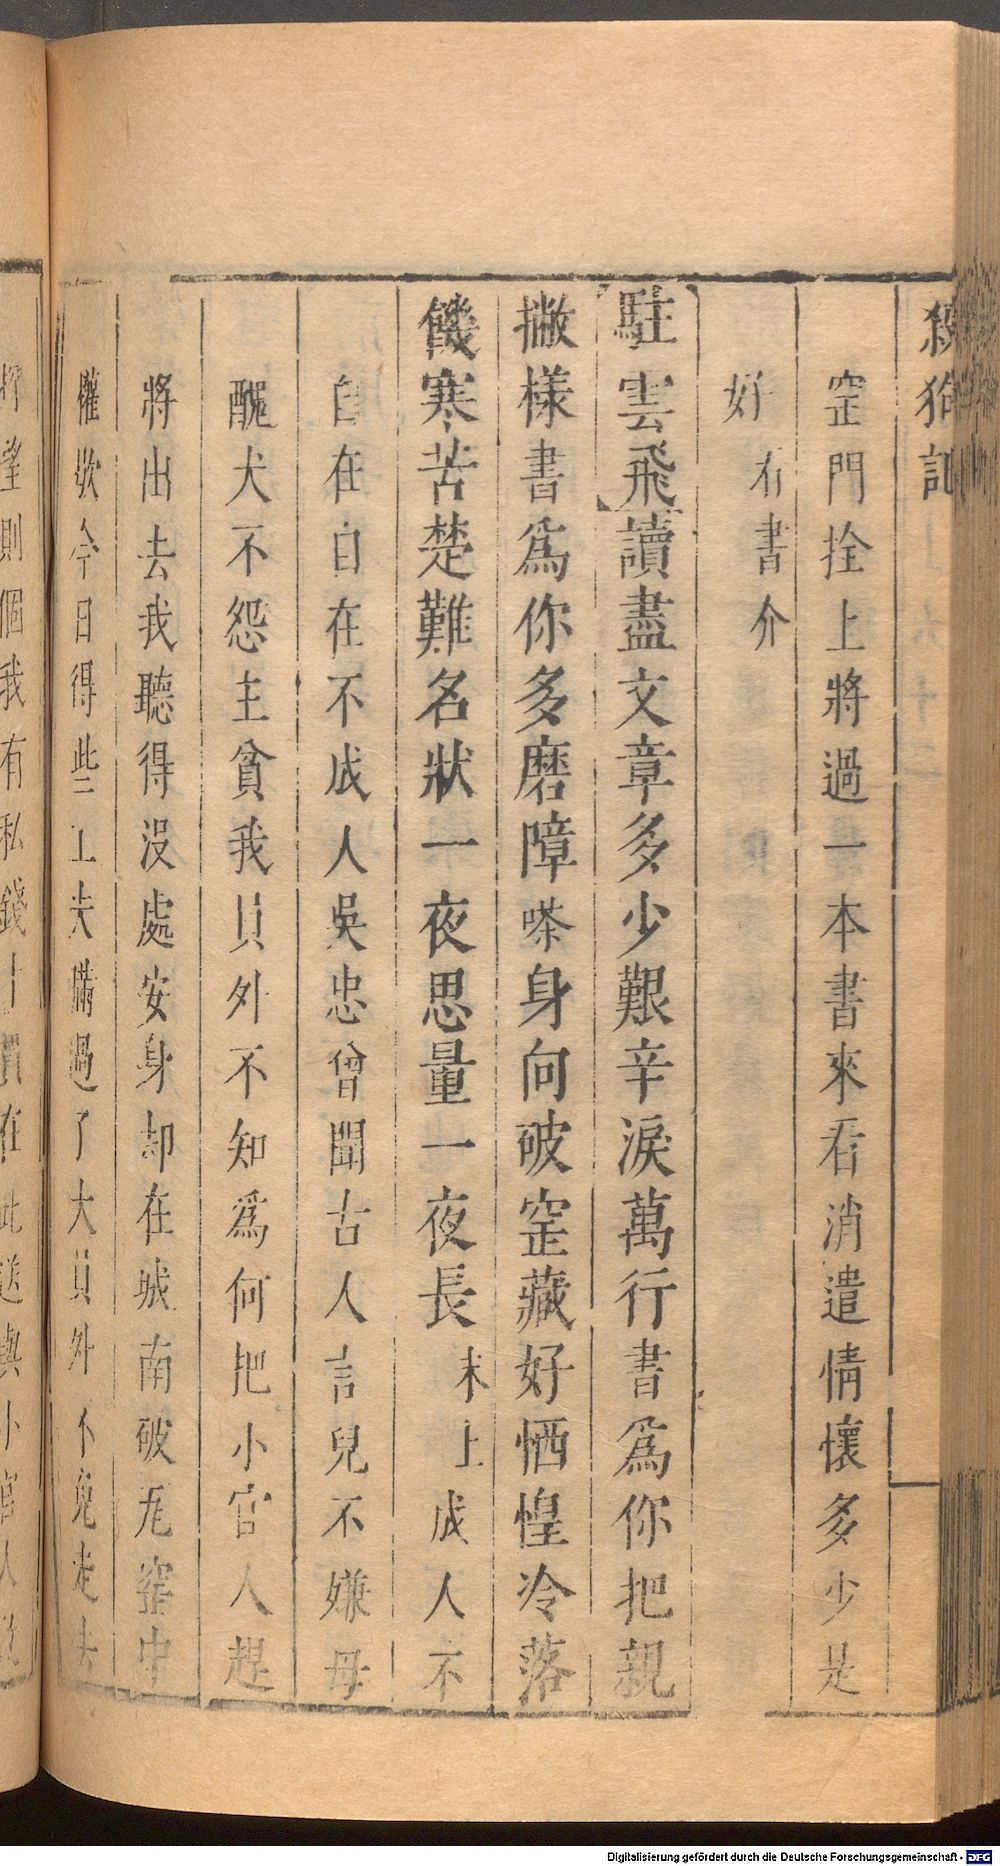 殺狗記
窑門拴上將過一本書來看消遣情懷多少是
好 看書介
駐雲飛讀盡文章多少艱辛淚萬行書爲你把親
撇樣書爲你多磨障嗏身向破窑藏好恓惶冷落
饑寒苦楚難名狀一夜思量一夜長 末上 成人不
自在自在不成人吳忠曾聞古人言兒不嫌母
醜犬不怨主貧我員外不知爲何把小官人趕
將出去我聽得沒處安身却在城南破瓦窑中
權歇今日得些工夫瞞過了大員外不免走去
望則個我有私錢 在此送與小官人
Digitalisierung gefördert durch die Deutsche Forschungsgemeinschaft - DFG